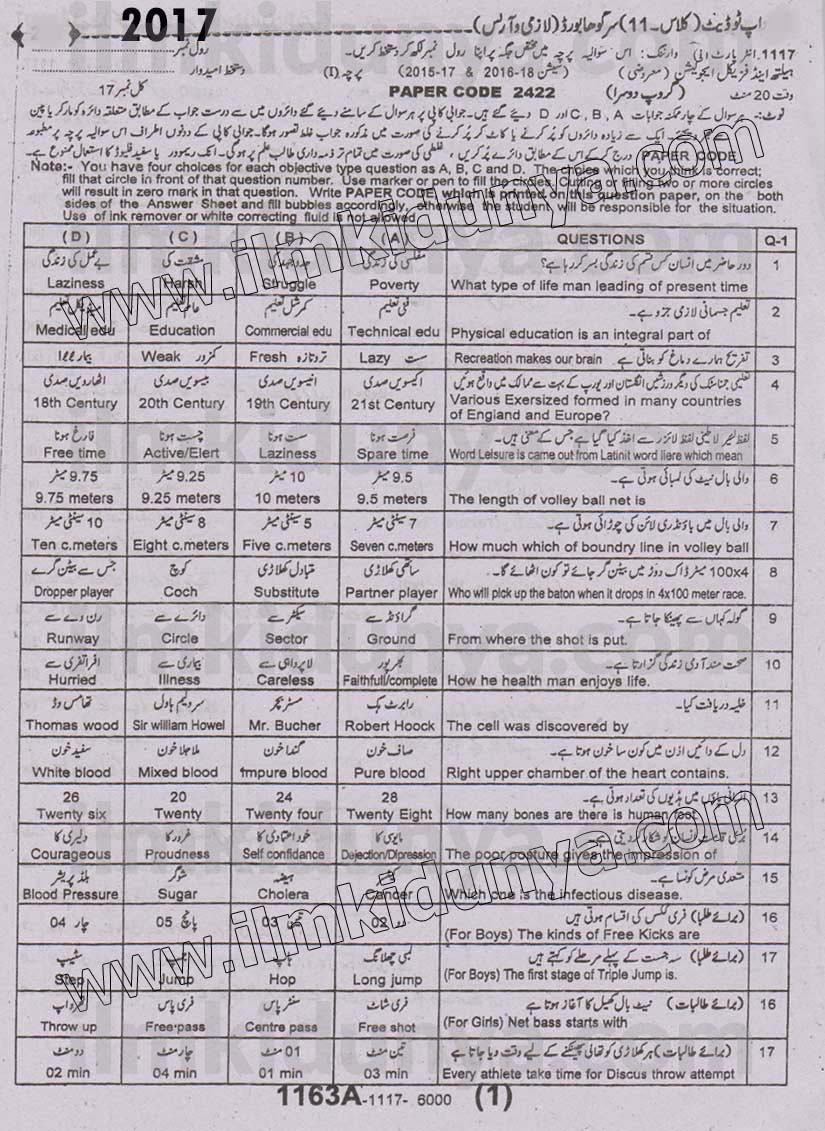 2017
اپ ٹو ڈیٹ (کلاس - 11) سرگودھا بورڈ (لازمی و آرٹس)
1117۔ انٹر پارٹ وارننگ: اس سوالیہ پرچہ میں مختص جگہ پر اپنا رول نمبر لکھ کر دستخط کریں۔ رول نمبر
ہیلتھ اینڈ فزیکل ایجوکیشن (معروضی) (سیشن 18-2016 & 17-2015) پرچہ (I) دستخط امیدوار
وقت 20 منٹ (گروپ دوسرا) PAPER CODE 2422 کل نمبر 17
نوٹ:- ہر سوال کے چار ممکنہ جوابات A,B,C اور D دیئے گئے ہیں۔ جوابی کاپی پر ہر سوال کے سامنے دیئے گئے دائروں میں سے درست جواب کے مطابق متعلقہ دائرہ کو مارکر یا پین
ایک سے زیادہ دائروں کو پُر کرنے یا کاٹ کر پُر کرنے کی صورت میں مذکورہ جواب غلط تصور ہوگا۔ جوابی کاپی کے دونوں اطراف اس سوالیہ پرچہ پر مطبوعہ
PAPER CODE درج کر کے اس کے مطابق دائرے پُر کریں، غلطی کی صورت میں تمام تر ذمہ داری طالب علم پر ہوگی۔ انک ریموور یا سفید فلیوڈ کا استعمال ممنوع ہے۔
Note:- You have four choices for each objective type question as A, B, C and D. The choice which you think is correct;
fill that circle in front of that question number. Use marker or pen to fill the circles. Cutting or filling two or more circles
will result in zero mark in that question. Write PAPER CODE, which is printed on this question paper, on the both
sides of the Answer Sheet and fill bubbles accordingly, otherwise the student will be responsible for the situation.
Use of ink remover or white correcting fluid is not allowed
(D) (C) (B) (A) QUESTIONS Q-1
بے عملی کی زندگی مشقت کی جدوجہد کی مفلسی کی زندگی دور حاضر میں انسان کس قسم کی زندگی بسر کر رہا ہے؟ 1
Laziness Harsh Struggle Poverty What type of life man leading of present time
میڈیکل تعلیم عام تعلیم کمرشل تعلیم فنی تعلیم تعلیم جسمانی لازمی جزو ہے۔ 2
Medical edu Education Commercial edu Technical edu Physical education is an integral part of
بیمار Ill کمزور Weak تروتازہ Fresh سست Lazy تفریح ہمارے دماغ کو بناتی ہے۔ Recreation makes our brain 3
اٹھارویں صدی بیسویں صدی انیسویں صدی اکیسویں صدی تعلیمی جمناسٹک کی دیگر ورزشیں انگلستان اور یورپ کے بہت سے ممالک میں واقع ہوئیں 4
18th Century 20th Century 19th Century 21st Century Various Exersized formed in many countries
of England and Europe?
فارغ ہونا چست ہونا سست ہونا فرصت ہونا لفظ لیژر لاطینی لفظ لائزر سے اخذ کیا گیا ہے جس کے معنی ہیں۔ 5
Free time Active/Elert Laziness Spare time Word Leisure is came out from Latinit word liere which mean
9.75 میٹر 9.25 میٹر 10 میٹر 9.5 میٹر والی بال نیٹ کی لمبائی ہوتی ہے۔ 6
9.75 meters 9.25 meters 10 meters 9.5 meters The length of volley ball net is
10 سینٹی میٹر 8 سینٹی میٹر 5 سینٹی میٹر 7 سینٹی میٹر والی بال میں باؤنڈری لائن کی چوڑائی ہوتی ہے۔ 7
Ten c.meters Eight c.meters Five c.meters Seven c.meters How much which of boundry line in volley ball
جس سے بیٹن گرے کوچ متبادل کھلاڑی ساتھی کھلاڑی 100x4 میٹر ڈاک دوڑ میں بیٹن گر جائے تو کون اٹھائے گا۔ 8
Dropper player Coch Substitute Partner player Who will pick up the baton when it drops in 4x100 meter race.
رن وے سے دائرے سے سیکٹر سے گراؤنڈ سے گولہ کہاں سے پھینکا جاتا ہے۔ 9
Runway Circle Sector Ground From where the shot is put.
افراتفری سے بیماری سے لاپرواہی سے بھرپور صحت مند آدمی زندگی گزارتا ہے۔ 10
Hurried Illness Careless Faithfull/complete How he health man enjoys life.
تھامس وڈ سر ولیم ہاول مسٹر بچر رابرٹ ہک خلیہ دریافت کیا۔ 11
Thomas wood Sir william Howel Mr. Bucher Robert Hoock The cell was discovered by
سفید خون ملا جلا خون گندا خون صاف خون دل کے دائیں اذن میں کون سا خون ہوتا ہے۔ 12
White blood Mixed blood Impure blood Pure blood Right upper chamber of the heart contains.
26 20 24 28 انسانی پاؤں میں ہڈیوں کی تعداد ہوتی ہے۔ 13
Twenty six Twenty Twenty four Twenty Eight How many bones are there is human foot
دلیری کا غرور کا خود اعتمادی کا مایوسی کا 14
Courageous Proudness Self confidance Dejection/Dipression The poor posture gives the impression of
بلڈ پریشر شوگر ہیضہ کینسر متعدی مرض کونسا ہے۔ 15
Blood Pressure Sugar Cholera Cancer Which one is the infectious disease.
چار 04 پانچ 05 تین 03 دو 02 (برائے طلبا) فری ککس کی اقسام ہوتی ہیں 16
(For Boys) The kinds of Free Kicks are
سٹیپ جمپ ہاپ لمبی چھلانگ (برائے طلبا) سہ جست کے پہلے مرحلے کو کہتے ہیں 17
Step Jump Hop Long jump (For Boys) The first stage of Triple Jump is.
تھرو اپ فری پاس سنٹر پاس فری شاٹ (برائے طالبات) نیٹ بال کھیل کا آغاز ہوتا ہے 16
Throw up Free pass Centre pass Free shot (For Girls) Net bass starts with
دو منٹ چار منٹ 01 منٹ تین منٹ (برائے طالبات) ہر کھلاڑی کو تھالی پھینکنے کے لیے وقت دیا جاتا ہے 17
02 min 04 min 01 min 03 min Every athlete take time for Discus throw attempt
1163A-1117- 6000 (1)
www.ilmkidunya.com
www.ilmkidunya.com